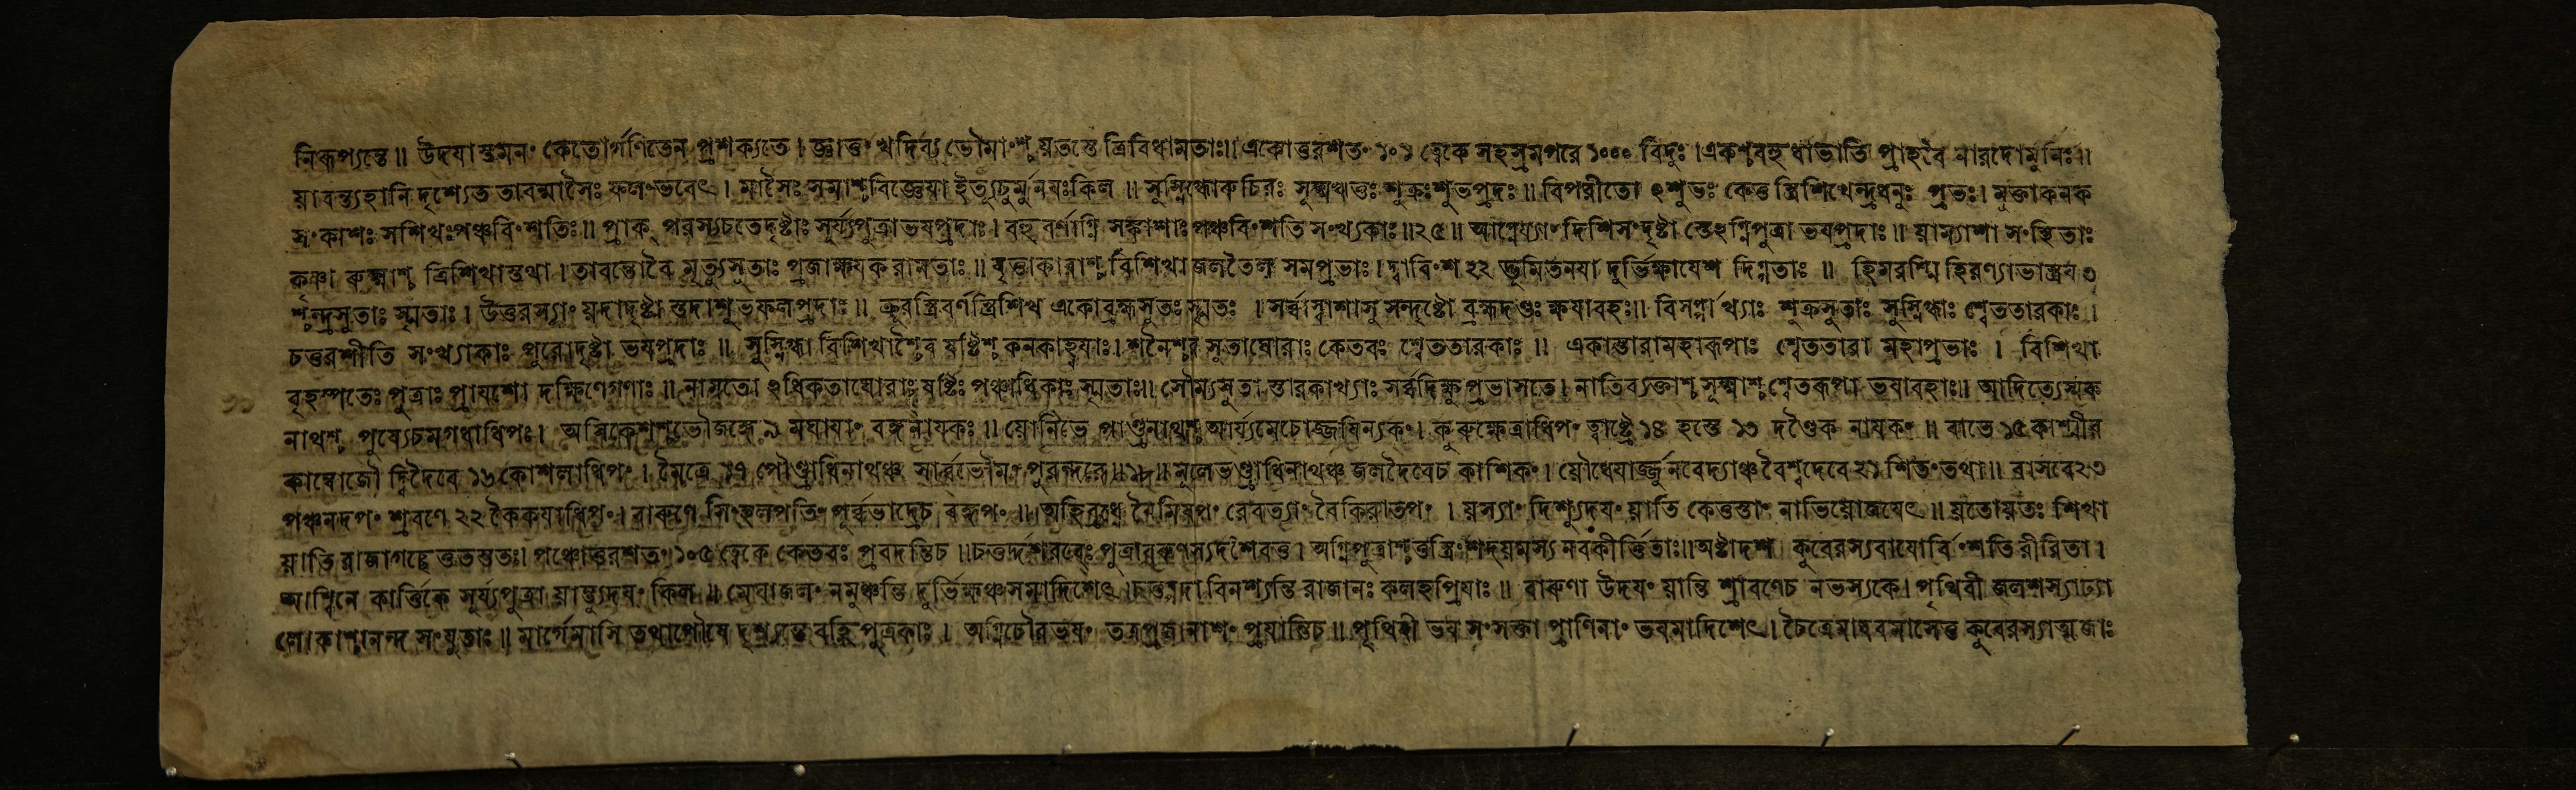 নিৰূপ্যন্তে ॥ উদযাস্তমনং কেতোর্গণিতেন প্রশক্যতে । জ্ঞাত্তুং খদিব্য ভৌমাংশ্চ য়তস্তে ত্রিবিধামতাঃ ॥ একোত্তরশতং ১০১ ত্বেকে সহস্রমপরে ১০০০ বিদুঃ । একশ্চবহুধাভাতি প্রাহৈবং নারদোমুনিঃ ॥
য়াবন্ত্যহানি দৃশ্যেত তাবন্মাসৈঃ ফলংভবেৎ । মাসৈঃ সমাশ্চবিজ্ঞেয়া ইত্যূচুর্মুনযঃকিল ॥ সুস্নিগ্ধোৰুচিরঃ সূক্ষ্মঋত্তঃ শুক্রঃশুভপ্রদঃ ॥ বিপরীতো ঽশুভঃ কেতু স্ত্রিশিখেন্দ্রধনুঃ প্রভঃ । মুক্তাকনক
সংকাশঃ সশিখঃপঞ্চবিংশতিঃ ॥ প্রাক্ পরস্যচতেদৃষ্টাঃ সূর্য্যপুত্রাভযপ্রদাঃ । বহুবর্ণাগ্নি সঙ্কাশাঃ পঞ্চবিংশতি সংখ্যকাঃ ॥ ২৫ ॥ আগ্নেয্যাং দিশিসংদৃষ্টা স্তেঽগ্নিপুত্রা ভযপ্রদাঃ ॥ য়াম্যাশা সংস্থিতাঃ
কৃষ্ণা ৰুক্ষাশ্চ ত্রিশিখাস্তথা । তাবন্তোবৈ মৃত্যুসুতাঃ প্রজাক্ষযকরামতাঃ ॥ বৃত্তাকারাশ্চ বিশিখা জলতৈল সমপ্রভাঃ । দ্বাবিংশ ২২ দ্ভূমিতনযা দুর্ভিক্ষাযেশ দিগ্গতাঃ ॥ হিমরশ্মি হিরণ্যাভাস্ত্রয ৩
শ্চন্দ্রসুতাঃ স্মৃতাঃ । উত্তরস্যাং য়দাদৃষ্টা স্তদাশুভফলপ্রদাঃ ॥ ক্রূরস্ত্রিবর্ণস্ত্রিশিখ একোব্রহ্মসুতঃ স্মৃতঃ । সর্ব্বাস্বাশাসু সন্দৃষ্টো ব্রহ্মদণ্ডঃ ক্ষযাবহঃ ॥ বিসর্পাখ্যাঃ শুক্রসুতাঃ সুস্নিগ্ধাঃ শ্বেততারকাঃ ।
চত্তরশীতি সংখ্যাকাঃ পুরোদৃষ্টা ভযপ্রদাঃ ॥ সুস্নিগ্ধা বিশিখাশ্চৈব ষষ্টিশ্চ কনকাহ্বযাঃ । শনৈশ্চর সুতাঘোরাঃ কেতবঃ শ্বেততারকাঃ ॥ একাস্তারামহাৰূপাঃ শ্বেততারা মহাপ্রভাঃ । বিশিখা
বৃহস্পতেঃ পুত্রাঃ প্রাযশো দক্ষিণেগণাঃ ॥ নামতো ঽধিকতাঘোরাঃ ষষ্টিঃ পঞ্চাধিকাঃ স্মৃতাঃ ॥ সৌম্যসুতা স্তারকাখ্যাঃ সর্ব্বদিক্ষু প্রভাসতে । নাতিব্যক্তাশ্চ সূক্ষ্মাশ্চ শ্বেতৰূপা ভযাবহাঃ ॥ আদিত্যেস্মক
নাথশ্চ পুষ্যেচমগধাধিপঃ । অসিকেশশ্চভৌজঙ্গে ৯ মঘাযাং বঙ্গনাযকঃ ॥ য়োনিভে পাণ্ডুনাথশ্চ আর্য্যমেচোজ্জযিন্যকং । কুৰুক্ষেত্রাধিপং ত্বাষ্ট্রে ১৪ হস্তে ১৩ দণ্ডৈক নাযকং ॥ বাতে ১৫ কাশ্মীর
কাম্বোজৌ দ্বিদৈবে ১৬ কোশলাধিপং । মৈত্রে ১৭ পৌণ্ড্রাধিনাথঞ্চ সার্ব্বভৌমং পুরন্দরে ॥ ১৮ ॥ মূলেভণ্ড্রাধিনাথঞ্চ জলদৈবেচ কাশিকং । য়ৌধেযার্জ্জুনবেদ্যাঞ্চ বৈশ্বদেবে ২১ শিতং তথা ॥ বাসবে ২৩
পঞ্চনদপং শ্রবণে ২২ কৈকযাধিপং । বাৰুণে সিংহলপতিং পূর্ব্বভাদ্রেচ বঙ্গপং ॥ অহির্বুধ্ন নৈমিষপং রেবত্যাং বৈকিরাতপং । য়স্যাং দিশ্যুদযং য়াতি কেতুস্তাং নাভিয়োজযেৎ ॥ য়তোয়তঃ শিখা
য়াতি রাজাগচ্ছে ত্ততস্ততঃ । পঞ্চোত্তরশতং ১০৫ ত্বেকে কেতবঃ প্রবদন্তিচ ॥ চতুর্দ্দশরবেঃ পুত্রাবৰুণস্যদশৈবতু । অগ্নিপুত্রাশ্চতুস্ত্রিংশদ্যমস্য নবকীর্ত্তিতাঃ ॥ অষ্টাদশ কুবেরস্যবাযোর্বিংশতি রীরিতা ।
আশ্বিনে কার্ত্তিকে সূর্য্যপুত্রা য়ান্ত্যুদযং কিল ॥ মেঘাজলং নমুঞ্চন্তি দুর্ভিক্ষঞ্চসমাদিশেৎ । চতুষ্পদা বিনশ্যন্তি রাজানঃ কলহপ্রিযাঃ ॥ বাৰুণা উদযং য়ান্তি শ্রাবণেচ নভস্যকে । পৃথিবী জলশস্যাঢ্যা
লোকাশ্চানন্দ সংযুতাঃ ॥ মার্গেমাসি তথাপৌষে দৃশ্যন্তে বহ্নি পুত্রকাঃ । অগ্নিচৌরভযং তত্র প্রজানাশং প্রযান্তিচ ॥ পৃথিবী ভয সংসক্তা প্রাণিনাং ভযমাদিশেৎ । চৈত্রেমাধবমাসেতু কুবেরস্যাত্মজাঃ